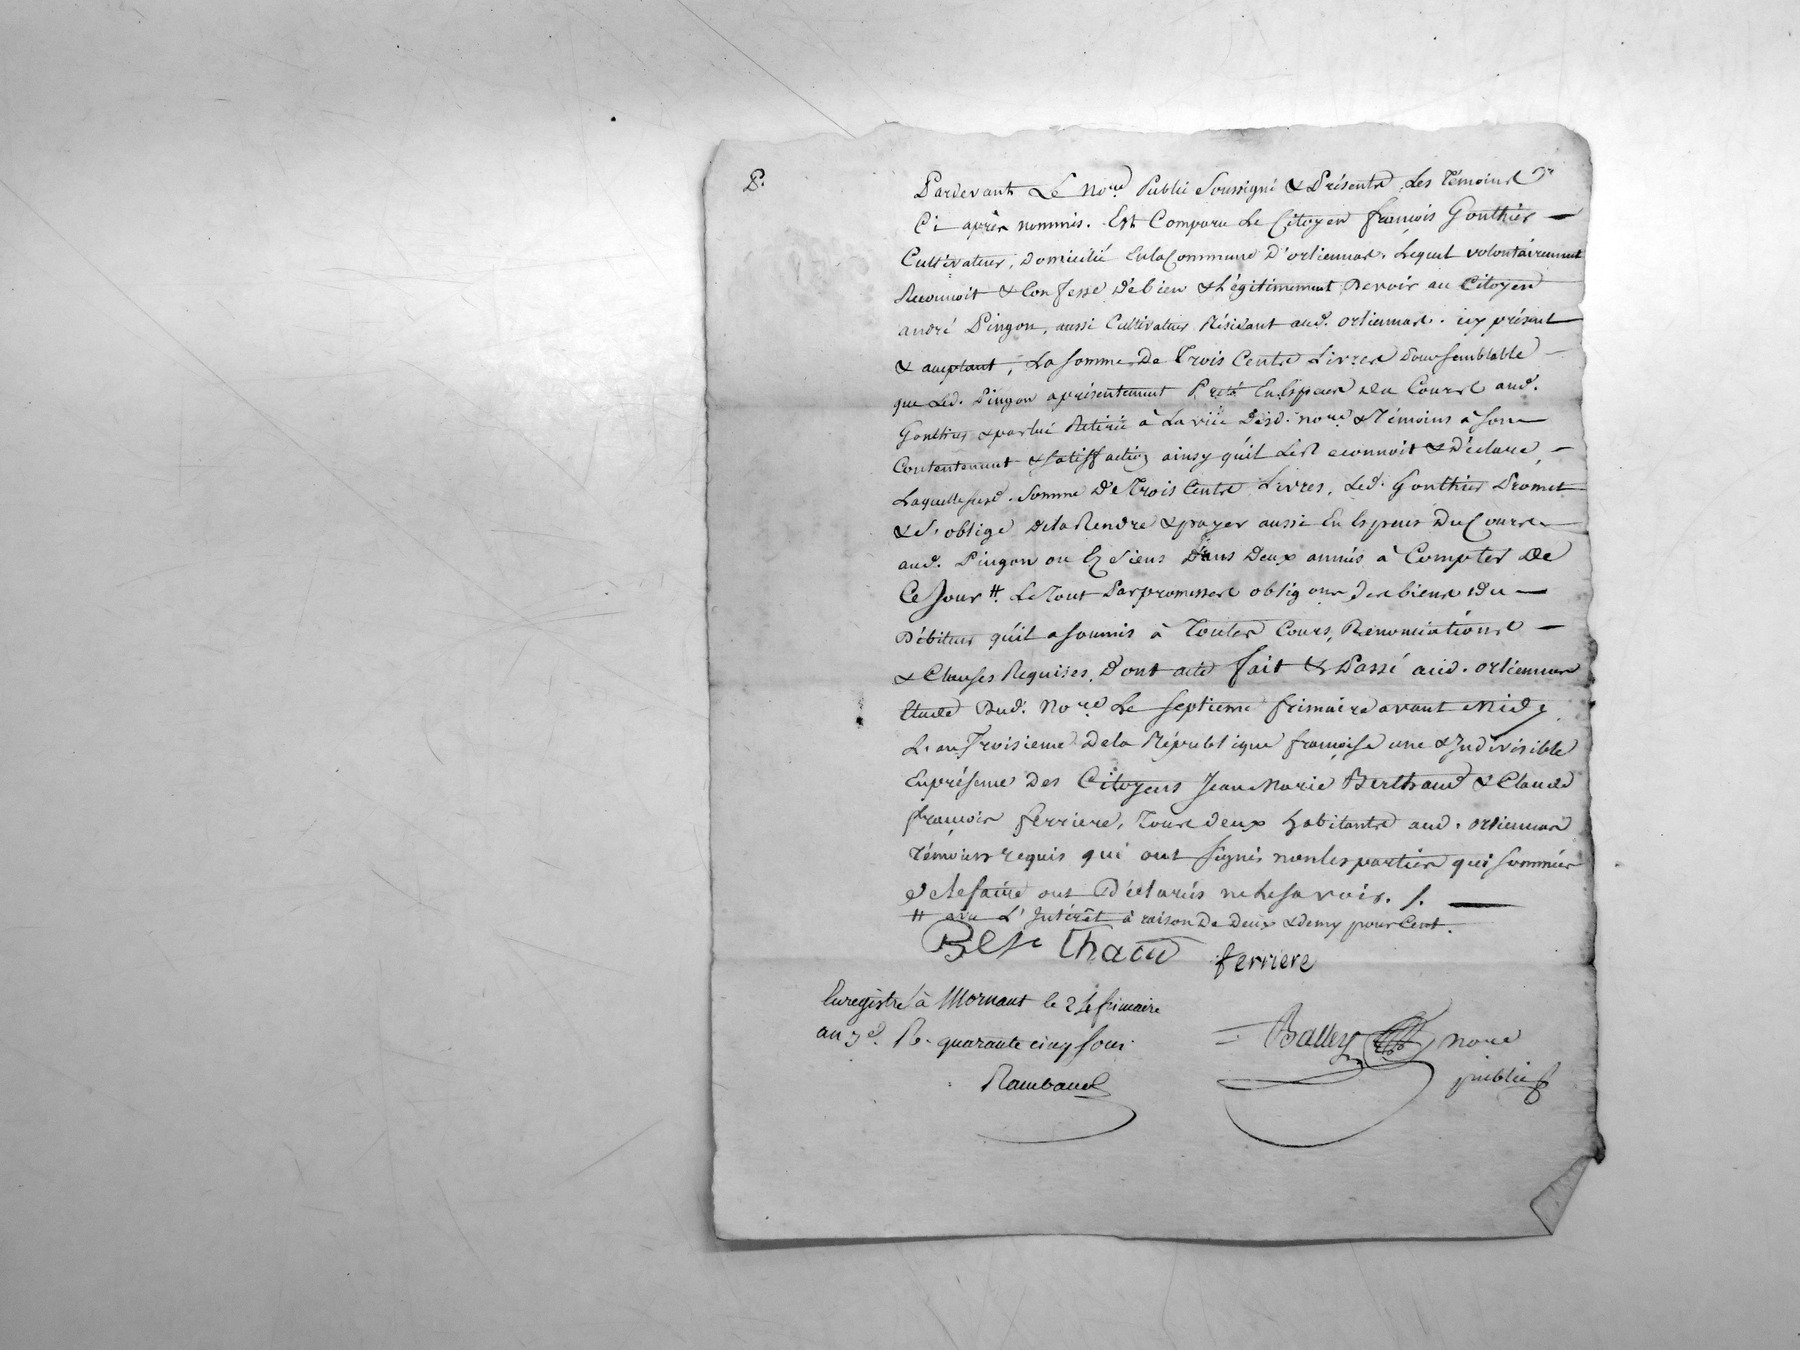 P.
Pardevant Le No.re Public Soussigné & Présents Les Témoins
Ci après nommés. Est Comparu Le Citoyen françois Gonthier —
Cultivateur, Domicilié En la Commune D'orliennas. Lequel volontairement
Reconnoit & Confesse D'ébien & Légitimement Devoir au Citoyen
andré Pingon, aussi Cultivateur Résidant aud. orliennas. icy présent
& aceptant, La Somme De Trois Cents Livres Pour Semblable —
que Led. Pingon a présentement Preté En Espèces du Cours aud.
Gonthier & par lui Retirée à La vüe Desd. No.re & Témoins à Son
Contentement & Satisffaction ainsy qu'il Le Reconnoit & Déclare, —
Laquelle susd. Somme De Trois Cents Livres, Led. Gonthier Promet
& S'oblige De la Rendre & payer aussi En Espèces Du Cours
aud. Pingon ou Ez Siens Dans Deux années à Compter De
Ce Jour #. Le Tout Par promesses oblig ons Des biens Du —
Débiteur qu'il a Soumis à Toutes Cours, Renonciations —
& Clauses Requises, Dont acte fait & Passé aud. orliennas
Etude Dud. No.re Le Septieme frimaire avant Midy,
L'an Troisieme De la République françoise une & Indivisible
En présence Des Citoyens Jean Marie Berthaud & Claude
françois ferriere, Tous deux habitants aud. orliennas
Témoins requis qui ont Signés non les parties qui Sommées
De le faire ont Déclarés ne Le Savoir. /. —
# avec L'Intérêt à raison De Deux & demy pour Cent.
Berthaud ferriere
Enregistré à Mornant le 24 frimaire
an 3e. R. quarante cinq Sous.
Balley Nore
public
Rambaud